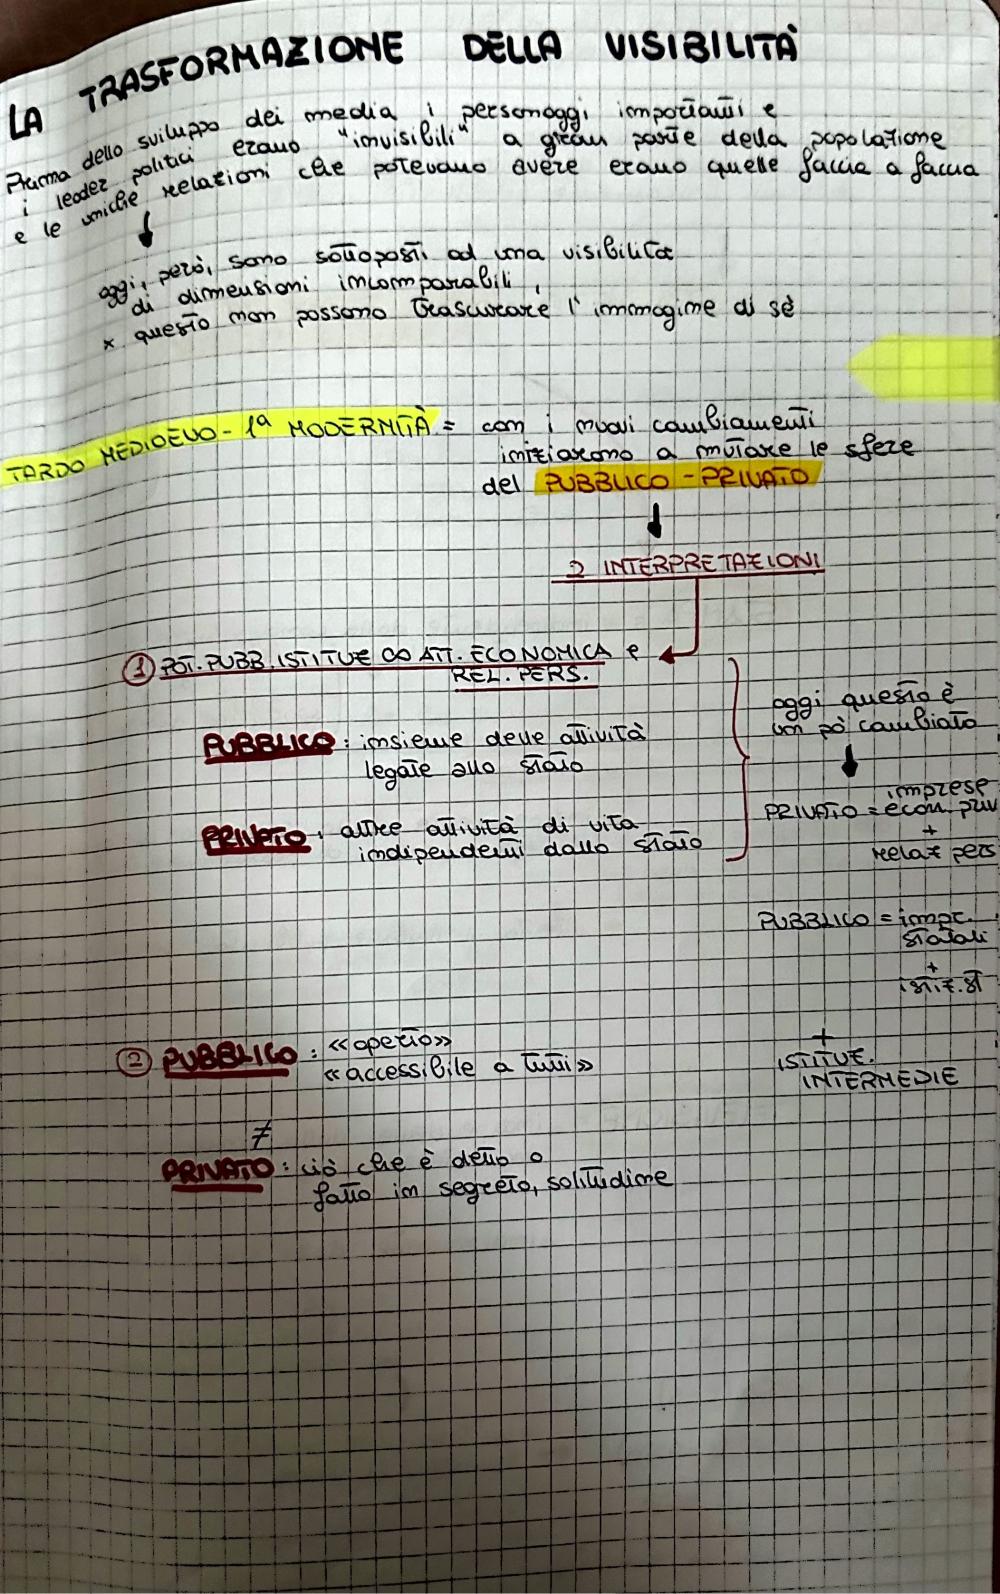 LA TRASFORMAZIONE DELLA VISIBILITÀ
Prima dello sviluppo dei media i personaggi importanti e
i leader politici erano "invisibili" a gran parte della popolazione
e le uniche relazioni che potevano avere erano quelle faccia a faccia
oggi, però, sono sottoposti ad una visibilità
di dimensioni incomparabili,
x questo non possono trascurare l'immagine di sè
TARDO MEDIOEVO - 1ª MODERNITÀ = con i nuovi cambiamenti
iniziarono a mutare le sfere
del PUBBLICO - PRIVATO
2 INTERPRETAZIONI
① POT. PUBB. ISTITUZ ATT. ECONOMICA e
REL. PERS.
PUBBLICO: insieme delle attività
legate allo stato
PRIVATO: altre attività di vita
indipendenti dallo stato
oggi questo è
un pò cambiato
imprese
PRIVATO = econ. priv
+
relaz pers
PUBBLICO = impr.
statali
+
istit. st
+
ISTITUZ.
INTERMEDIE
② PUBBLICO: «aperto»
«accessibile a tutti»
≠
PRIVATO: ciò che è detto o
fatto in segreto, solitudine